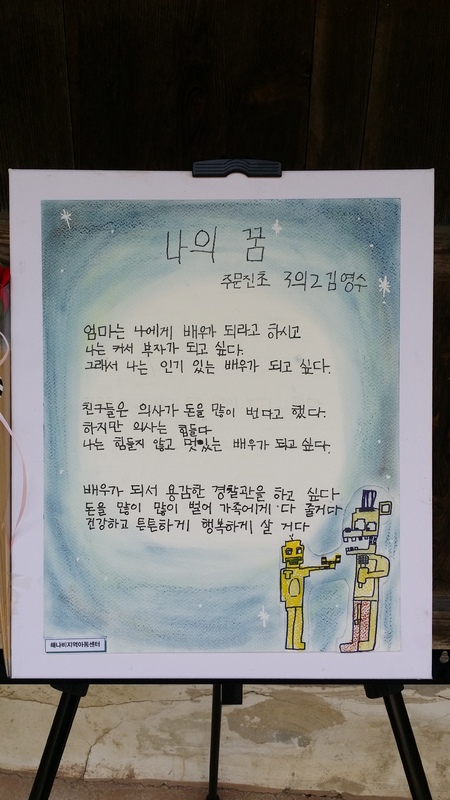 나의 꿈
주문진초 3의2 김영수
엄마는 나에게 배우가 되라고 하시고
나는 커서 부자가 되고 싶다.
그래서 나는 인기 있는 배우가 되고 싶다.
친구들은 의사가 돈을 많이 번다고 했다.
하지만 의사는 힘들다
나는 힘들지 않고 멋있는 배우가 되고 싶다.
배우가 되서 용감한 경찰관을 하고 싶다
돈을 많이 많이 벌어 가족에게 다 줄거다
건강하고 튼튼하게 행복하게 살 거다
해나비지역아동센터